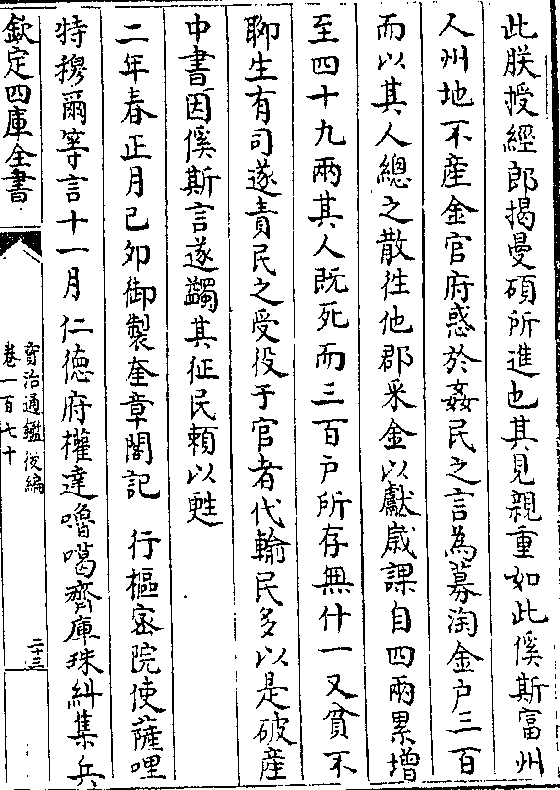 此朕授經郎揭曼碩所進也其見親重如此傒斯富州
人州地不産金官府惑於姦民之言為募淘金户三百
而以其人總之散徃他郡采金以獻歳課自四兩累增
至四十九兩其人既死而三百户所存無什一又貧不
聊生有司遂責民之受役于官者代輸民多以是破産
中書因傒斯言遂蠲其征民賴以甦
二年春正月己夘御製奎章閣記　行樞密院使薩哩
特穆爾等言十一月仁徳府權達嚕噶齊庫珠糾集兵
欽定四庫全書
資治通鑑後編
卷一百七十
二十三